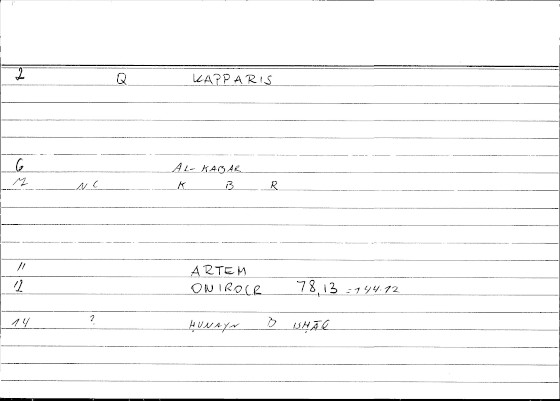 2 Q KAPPARIS
6 AL-KABAR
12 NC K B R
11 ARTEM
12 ONIROCR 78,13 =144.12
14 ? ḤUNAYN B ISḤĀQ